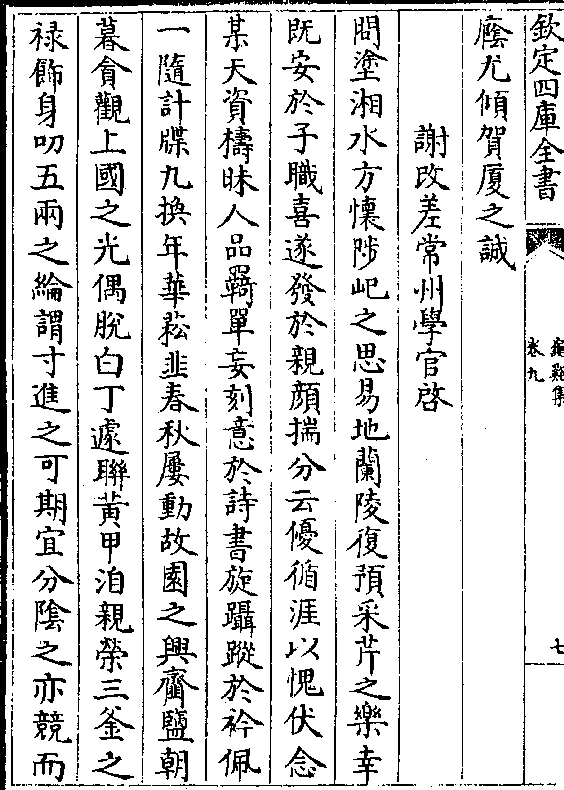 欽定四庫全書
卷九
七
廕尤傾賀厦之誠
謝改差常州學官啓
問塗湘水方懷陟屺之思易地蘭陵復預采芹之樂幸
既安於子職喜遂發於親顔揣分云優循涯以愧伏念
某天資檮昧人品羇單妄刻意於詩書旋躡蹤於衿佩
一隨計牒九換年華菘韭春秋屢動故園之興齎鹽朝
暮貪觀上國之光偶脱白丁遽聯黄甲洎親榮三釡之
禄飾身叨五兩之綸謂寸進之可期宜分陰之亦競而